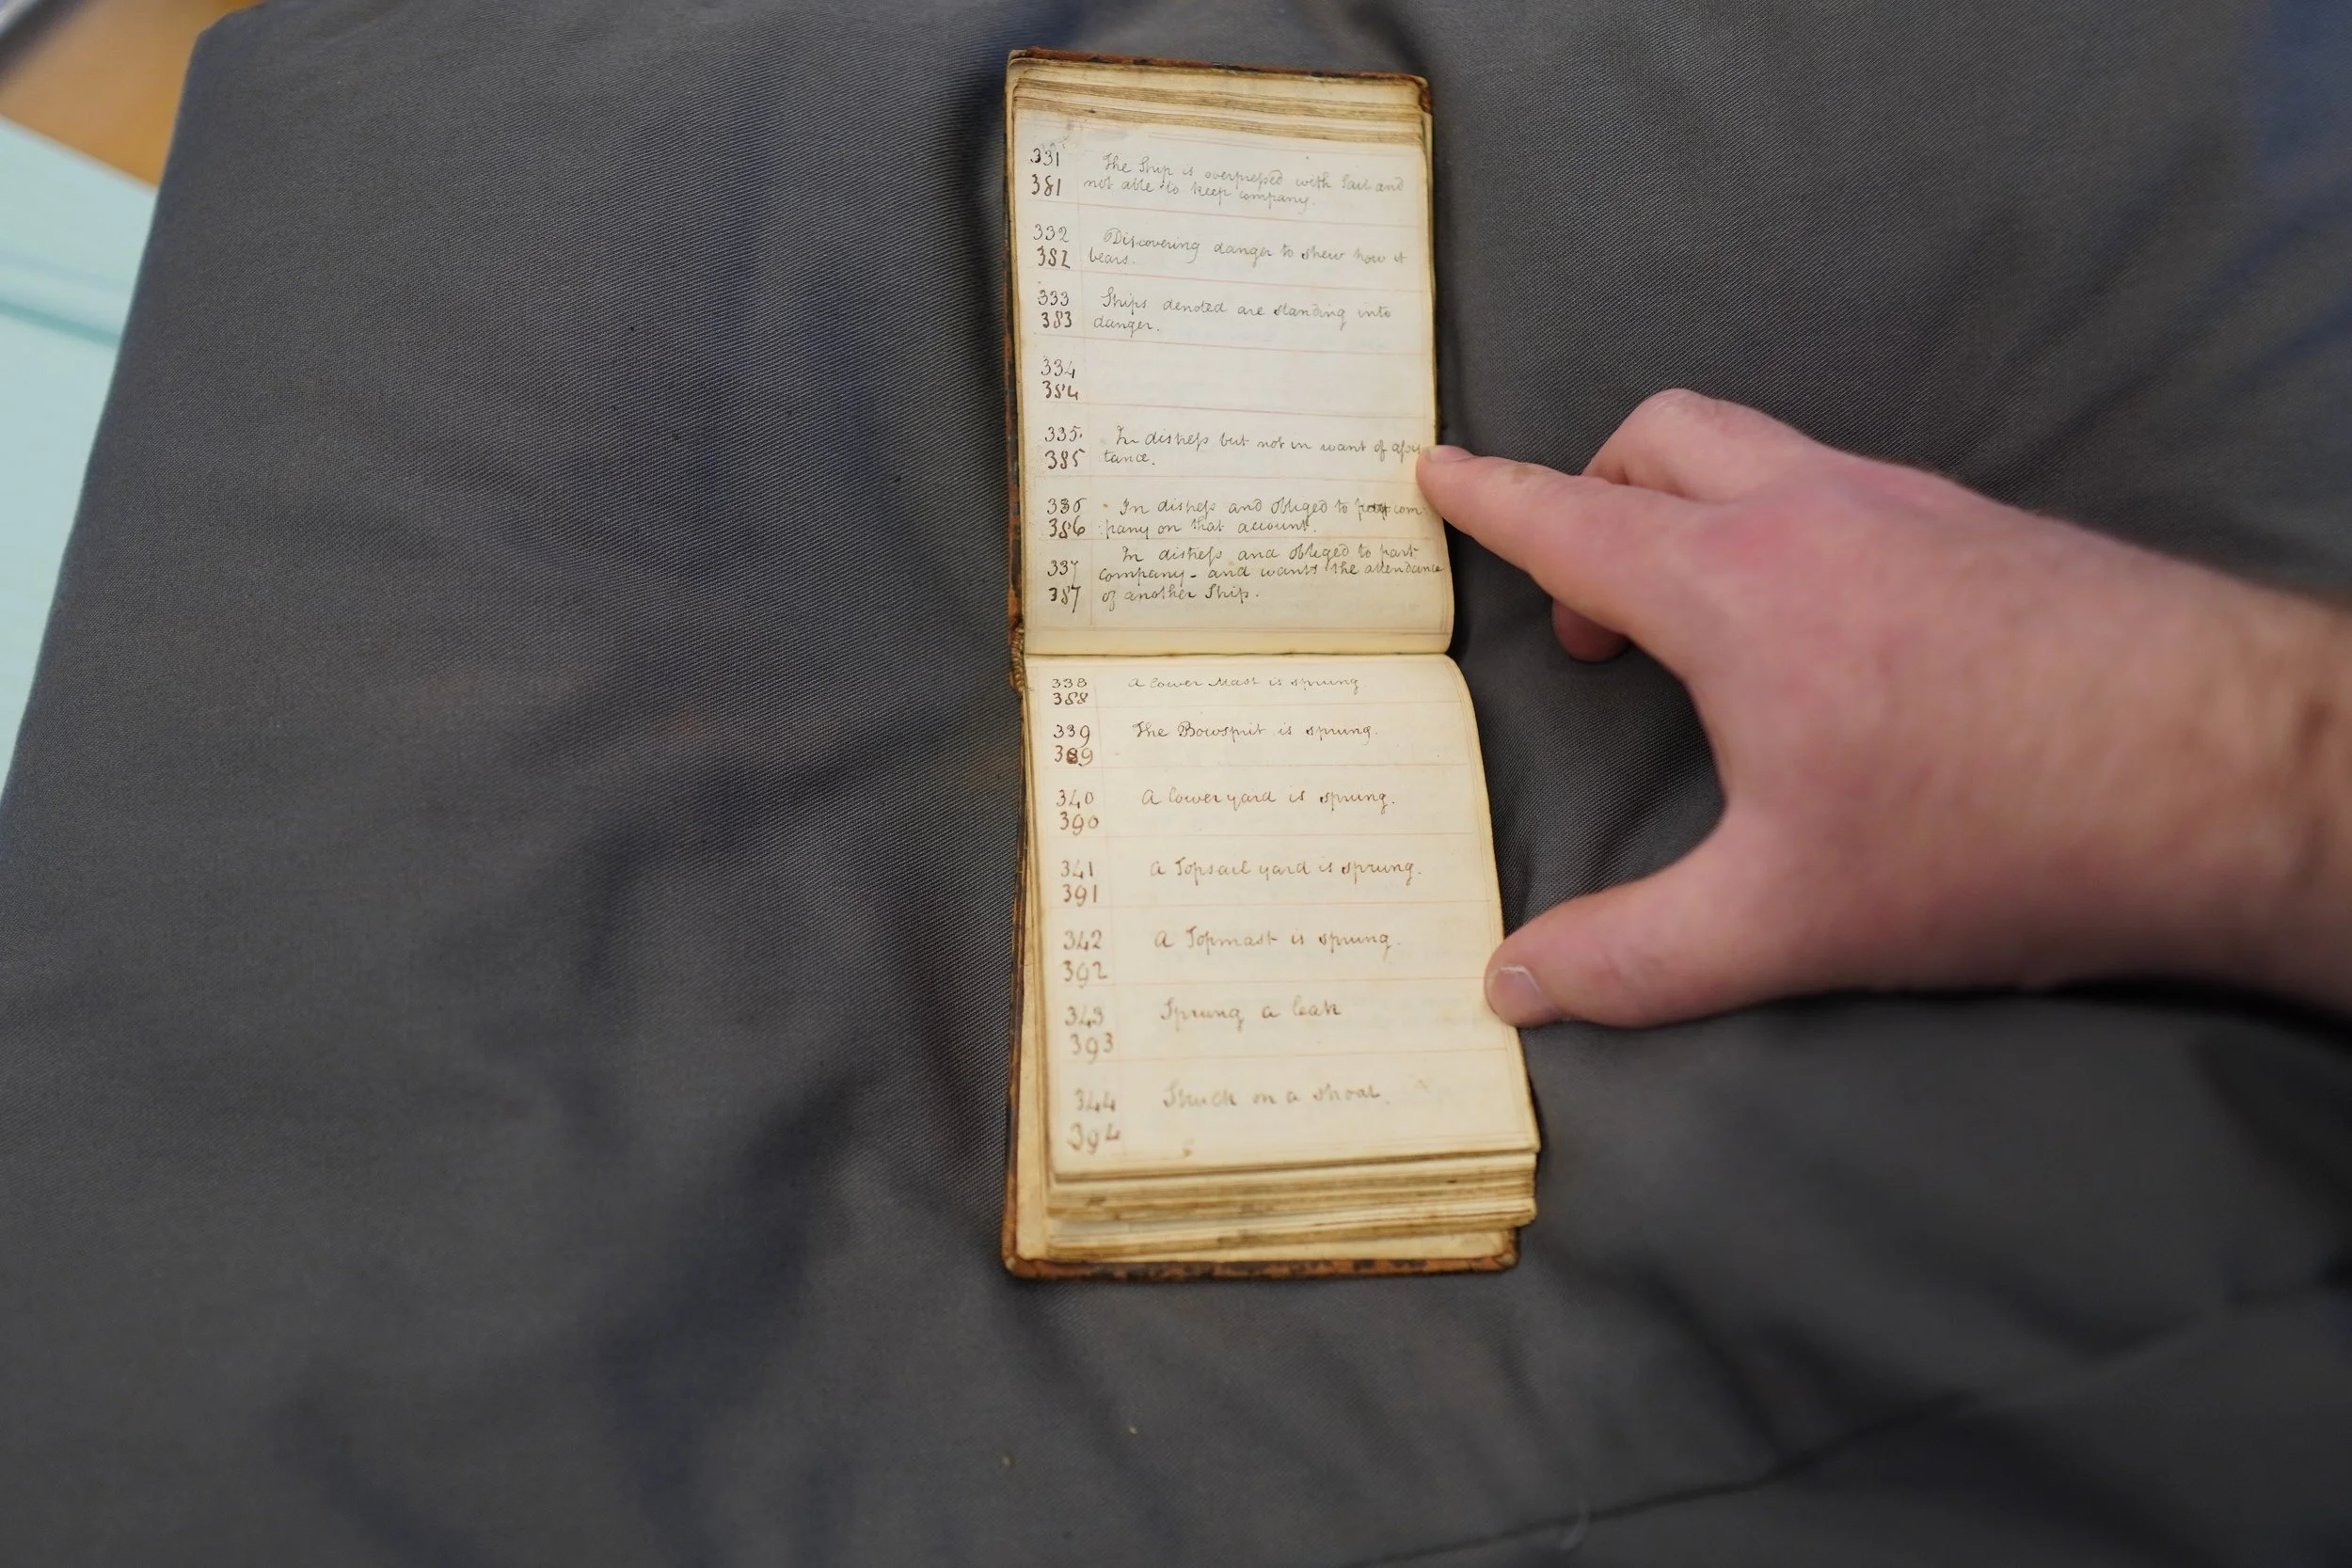 331
The Ship is overpressed with Sail and
381
not able to keep company.
332
Discovering danger to shew how it
382
bears.
333
Ships denoted are standing into
383
danger.
334
384
335.
In distress but not in want of assis
385
tance.
336
In distress and obliged to com-
386
pany on that account.
In distress and obleged to part
337
company - and wants the attendance
387
of another Ship.
338
A lower Mast is sprung
388
339
The Bowsprit is sprung.
389
340
A lower yard is sprung.
390
341
A Topsail yard is sprung.
391
342
A Topmast is sprung.
392
343
Sprung a leak
393
344
Struck on a shoal.
394